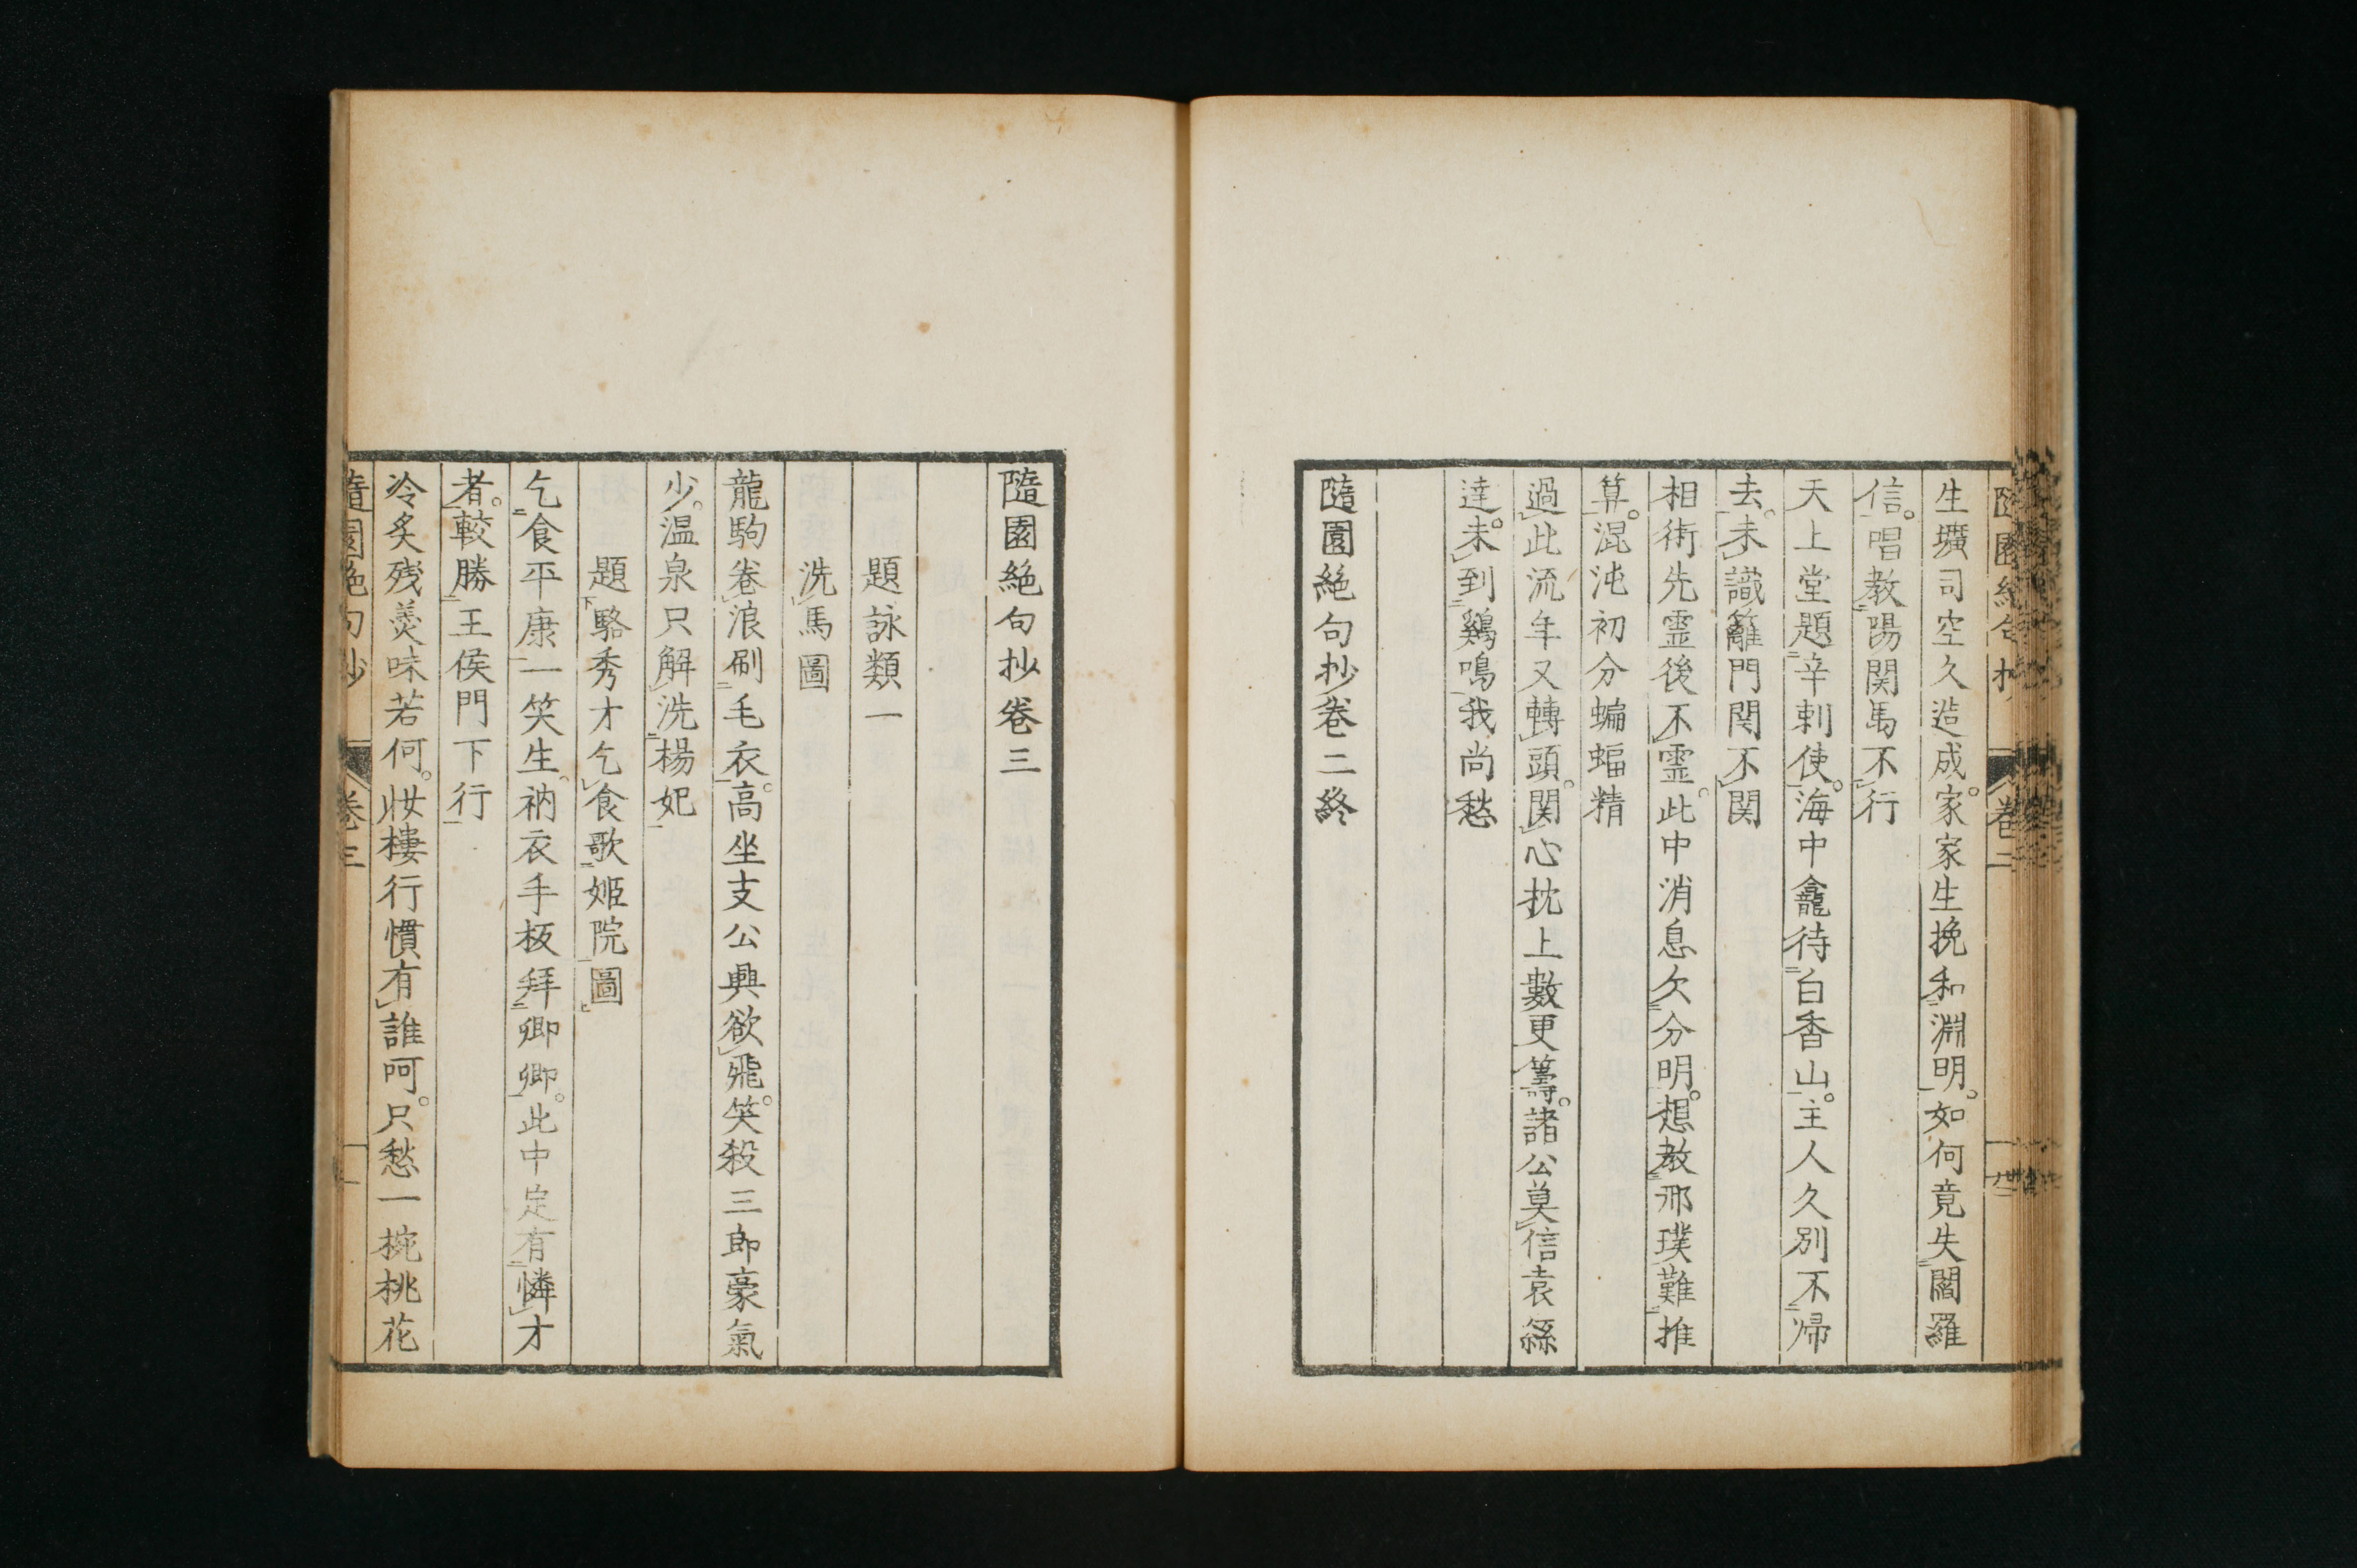 生壙司空久造成。家家生挽和淵明。如何竟失閻羅
信。唱教陽関馬不行
天上堂題辛剌使。海中龕待白香山。主人久別不帰
去。未識籬門関不関
相術先霊後不霊。此中消息欠分明。想教邢璞難推
算。混沌初分蝙蝠精
過此流年又轉頭。関心枕上數更籌。諸公莫信袁絲
達。未到鷄鳴我尚愁
隨園絶句抄卷二終
隨園絶句抄卷三
題詠類一
洗馬圖
龍駒卷浪刷毛衣。高坐支公興欲飛。笑殺三郎豪氣
少。温泉只解洗楊妃
題駱秀才乞食歌姬院圖
乞食平康一笑生。衲衣手板拜卿卿。此中定有憐才
者。較勝王侯門下行
冷炙残羹味若何。妝樓行慣有誰呵。只愁一椀桃花
隨園絶句抄 卷三